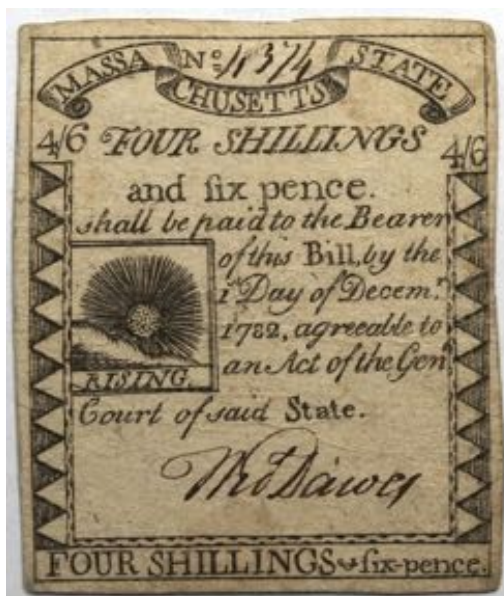 MASSA No. 4374 STATE
CHUSETTS
4/6 FOUR SHILLINGS 4/6
and six pence.
shall be paid to the Bearer
of this Bill, by the
1st Day of Decem.r
1782, agreeable to
an Act of the Gen.l
RISING.
Court of said State.
Tho.s Dawes
FOUR SHILLINGS six-pence.